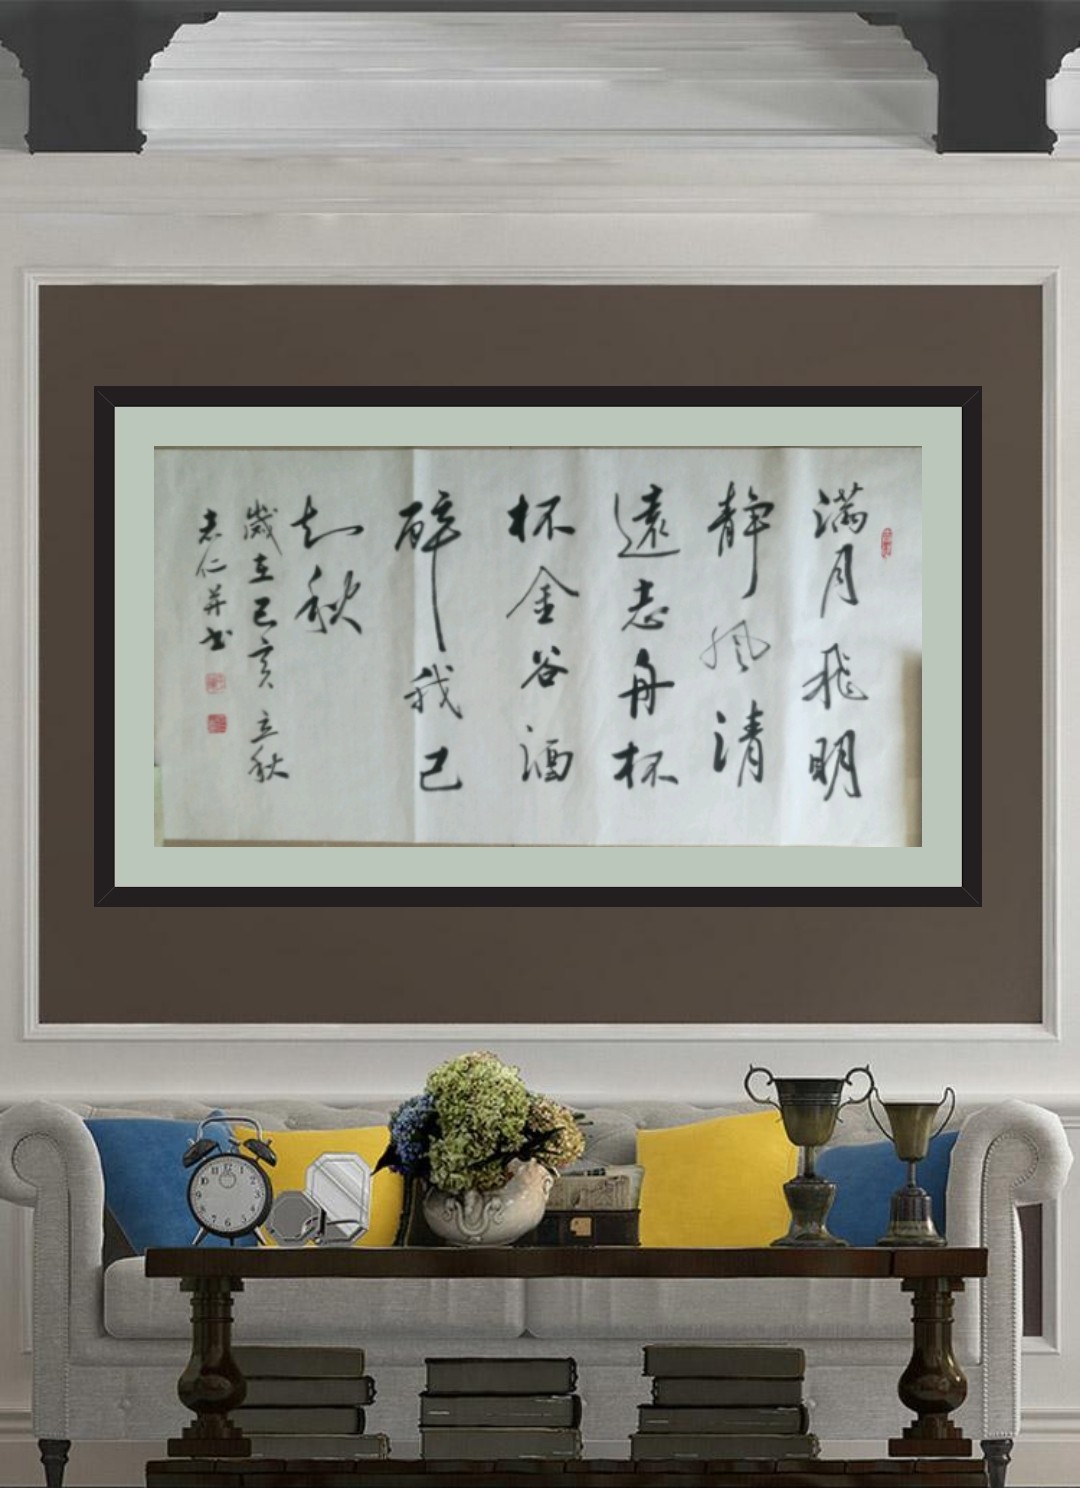 满月飛明
静风清
遠志舟杯
杯金谷酒
醉我己
知秋
歲在己亥 立秋
志仁并书